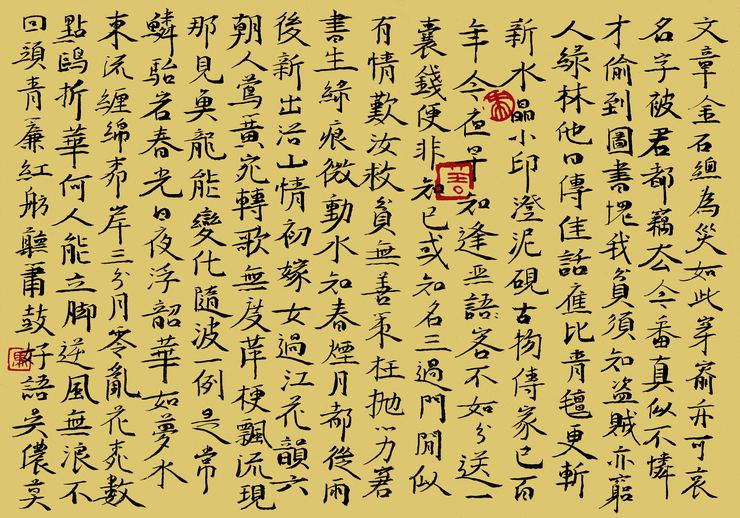 文章金石總為災如此穿窬亦可哀
名字被君都竊去今番真似不憐
才偷到圖書塊我貧須知盜賊亦窮
人綠林他日傳佳話應比青氈更斬
新水晶小印澄泥硯古物傳家已百
年今夜早知逢亞語客不如分送一
囊錢便非知己或知名三過門閒似
有情歎汝救貧無善策枉拋心力窘
書生綠痕微動水知春煙月都從雨
後新出浴山情初嫁女過江花韻六
朝人鶯黃宛轉歌無度萍梗飄流現
那見魚龍能變化隨波一例是常
鱗駘宕春光日夜浮韶華如夢水
東流纏綿夾岸三分月零亂花飛數
點鷗折華何人能立腳逆風無浪不
回頭青簾紅舫聽簫鼓好語吳儂莫